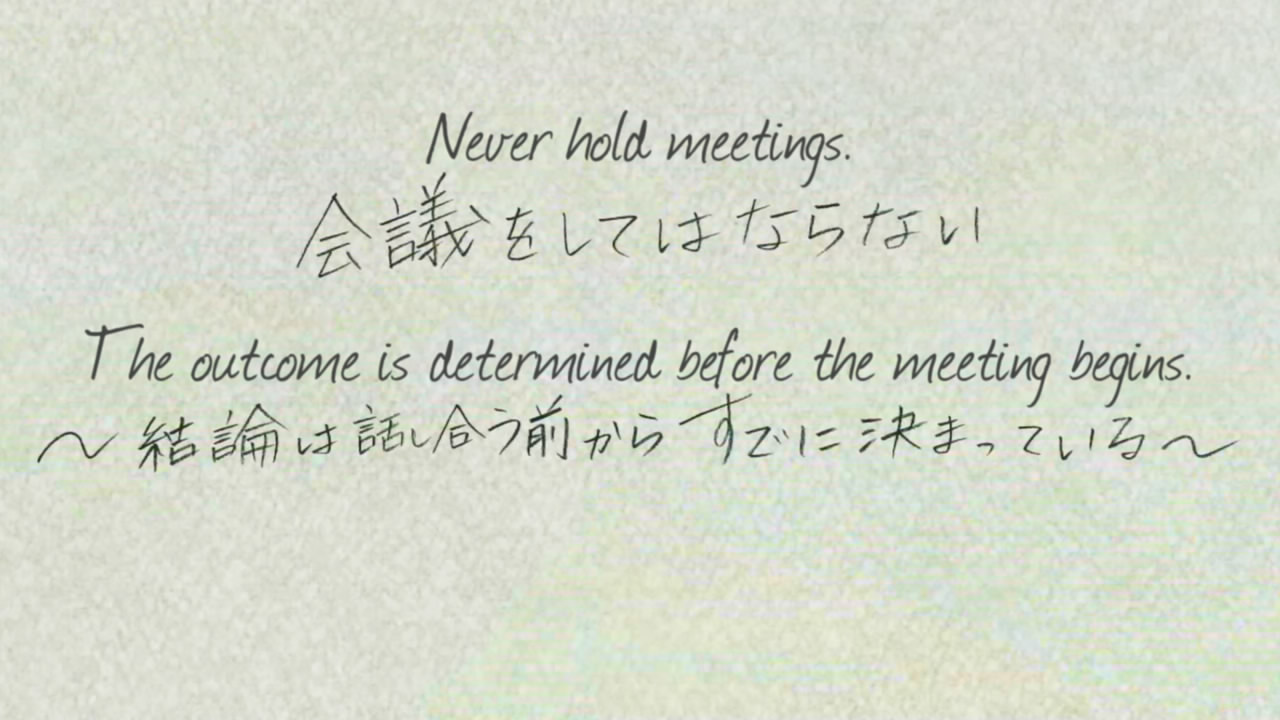 Never hold meetings.
会議をしてはならない
The outcome is determined before the meeting begins.
～結論は話し合う前からすでに決まっている～